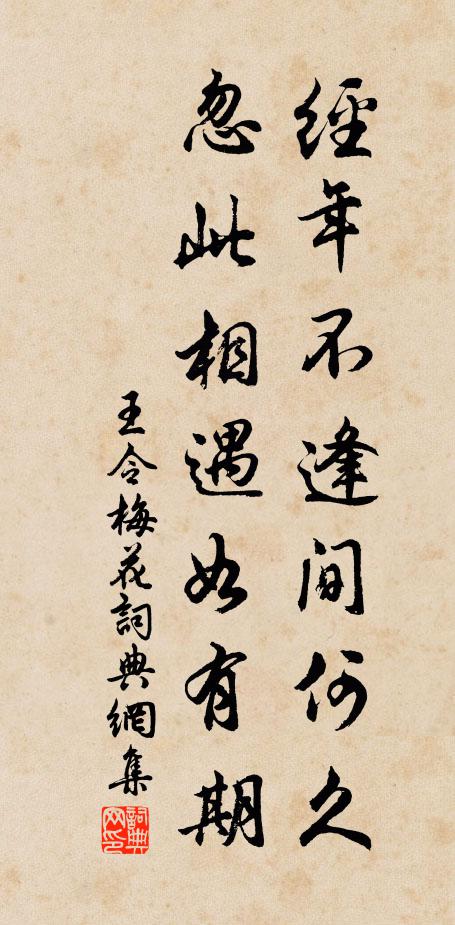 經年不逢間何久
忽此相遇如有期
王令梅花詞典網集
詞典网印